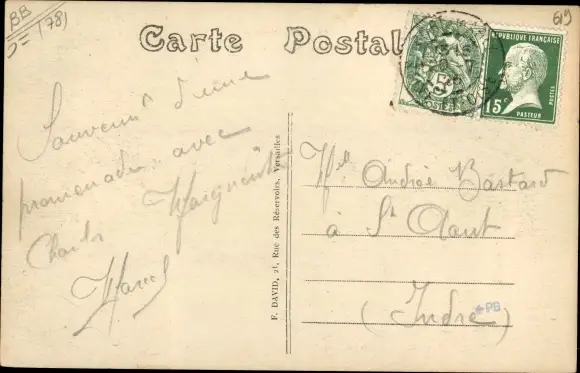 BB
(78)
5=
619
Carte Postale
5c
POSTES
RÉPUBLIQUE FRANÇAISE
15c
POSTES
PASTEUR
Souvenir d'une
promenade avec
Marguerite
Charles
Marcel
F. DAVID, 21, Rue des Réservoirs, Versailles
Mlle Andrée Bastard
à St Aout
(Indre)
PB